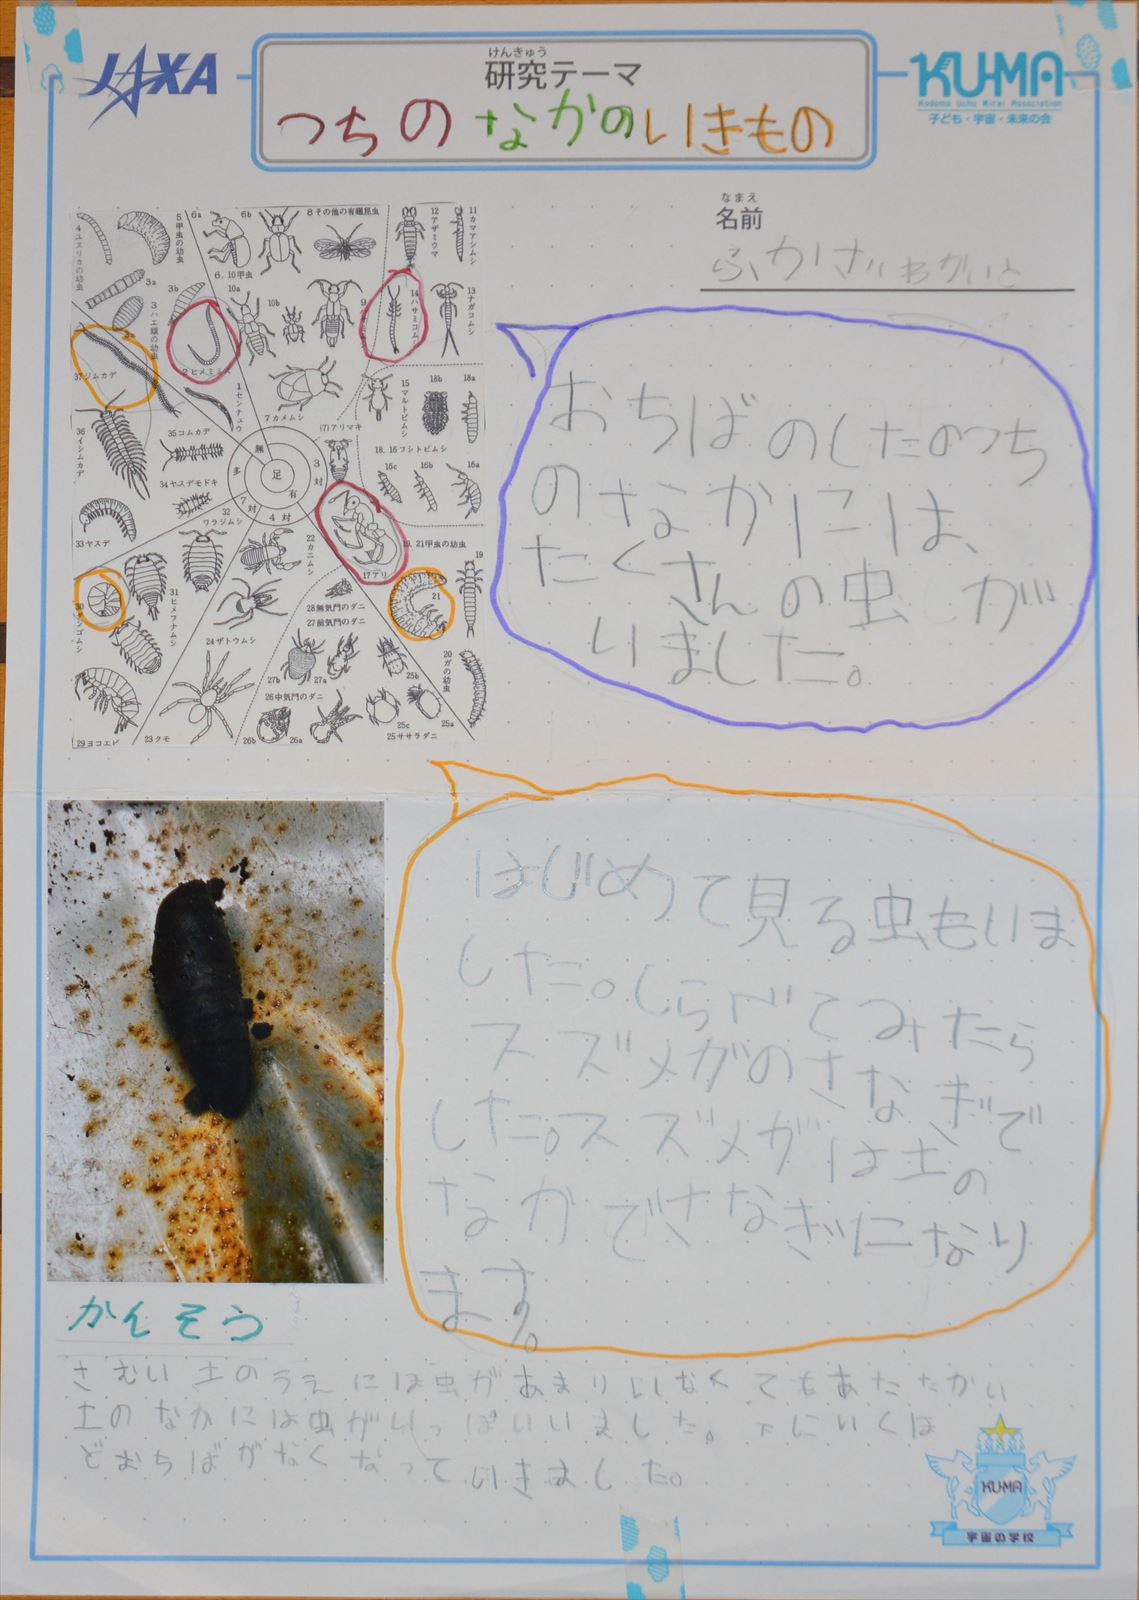 JAXA
けんきゅう
研究テーマ
つちのなかのいきもの
KU-MA
Kodomo Uchu Mirai Association
子ども・宇宙・未来の会
なまえ
名前
ふかさわかいと
4 ユスリカの幼虫
5 甲虫の幼虫
6a
6b
8 その他の有翅昆虫
12 アザミウマ
11 カマアシムシ
3a
3 ハエ類の幼虫
3b
6. 10 甲虫
10a
10b
9
14 ハサミコムシ
13 ナガコムシ
37 ジムカデ
2 ヒメミミズ
1 センチュウ
7 カメムシ
(7) アリマキ
15 マルトビムシ
18b
18a
36 イシムカデ
35 コムカデ
18. 16 フシトビムシ
34 ヤスデモドキ
16c
16b
16a
無
足
有
多
3対
4対
7対
33 ヤスデ
32 ワラジムシ
22 カニムシ
17 アリ
19. 21 甲虫の幼虫
19
21
30 ダンゴムシ
31 ヒメフナムシ
28 無気門のダニ
27 前気門のダニ
24 ザトウムシ
27b
27a
25b
20 ガの幼虫
26 中気門のダニ
29 ヨコエビ
23 クモ
26b
26a
25c
25a
25 ササラダニ
おちばのしたのつち
のなかには、
たくさんの虫が
いました。
はじめて見る虫もいま
した。しらべてみたら
スズメガのさなぎで
した。スズメガは土の
なかでさなぎになり
ます。
かんそう
さむい土のうえには虫があまりいなくてもあたたかい
土のなかには虫がいっぱいいました。下にいくほ
どおちばがなくなっていきました。
KU-MA
宇宙の学校